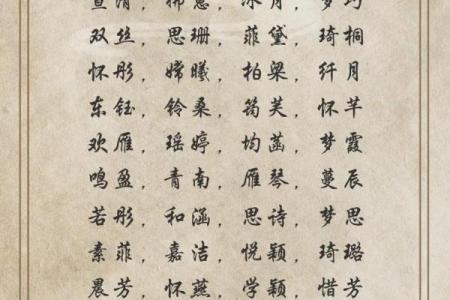 双丝，思珊，菲黛，琦桐
怀彤，嫦曦，柏梁，纤月
东钰，铃桑，筠芙，怀芊
欢雁，瑶婷，均菡，梦霞
鸣盈，青南，雁琴，蔓辰
若彤，和涵，思诗，梦思
素菲，嘉洁，悦颖，琦璐
晨芳，怀燕，学颖，惜芳